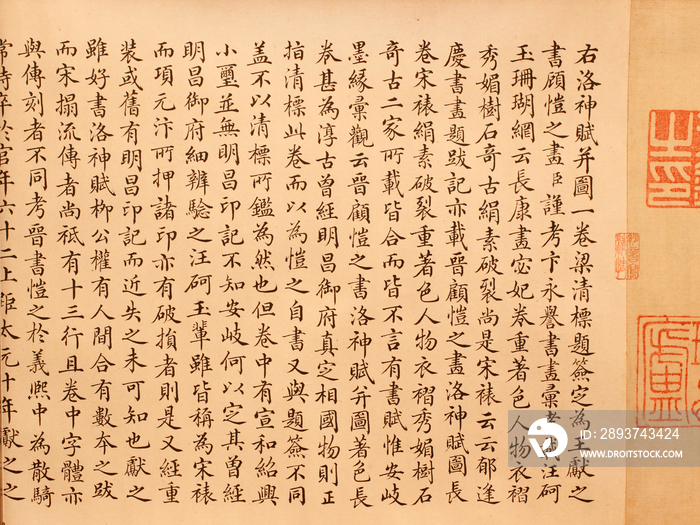 右洛神賦并圖一卷梁清標題簽定為王獻之
書顧愷之畫臣謹考卞永譽書畫彙考載汪砢
玉珊瑚網云長康畫宓妃卷重著色人物衣褶
秀媚樹石奇古絹素破裂尚是宋裱云云郁逢
慶書畫題跋記亦載晉顧愷之畫洛神賦圖長
卷宋裱絹素破裂重著色人物衣褶秀媚樹石
奇古二家所載皆合而皆不言有書賦惟安岐
墨緣彙觀云晉顧愷之書洛神賦并圖著色長
卷甚為淳古曾經明昌御府真定相國物則正
指清標此卷而以為愷之自書又與題簽不同
蓋不以清標所鑑為然也但卷中有宣和紹興
小璽並無明昌印記不知安岐何以定其曾經
明昌御府細辨驗之汪砢玉輩雖皆稱為宋裱
而項元汴所押諸印亦有破損者則是又經重
裝或舊有明昌印記而近失之未可知也獻之
雖好書洛神賦柳公權有人間合有數本之跋
而宋搨流傳者尚祗有十三行且卷中字體亦
與傳刻者不同考晉書愷之於義熙中為散騎
常侍卒於官年六十二上距太元十年獻之之
dfv
图行天下
PHOTOPHOTO.CN
ID: 2893743424
WWW.DROITSTOCK.COM